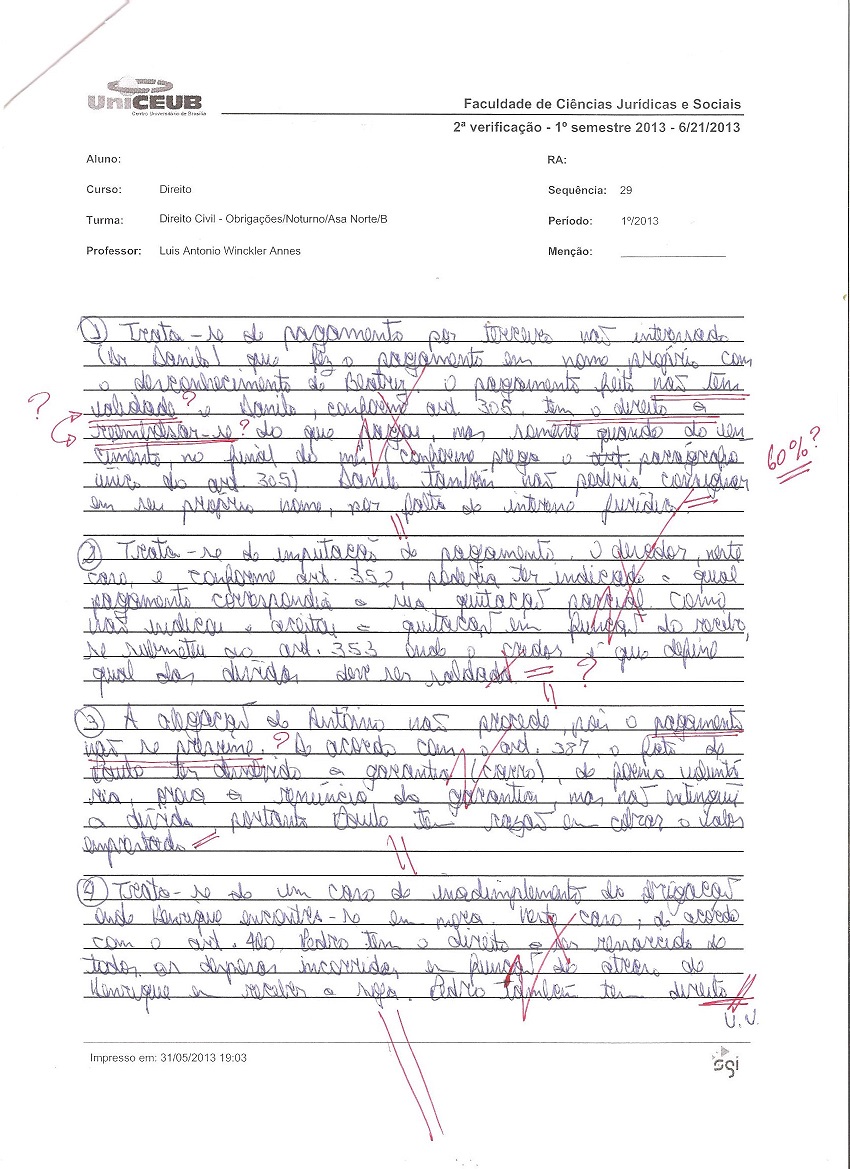 UniCEUB
Centro Universitário de Brasília
Faculdade de Ciências Jurídicas e Sociais
2ª verificação - 1º semestre 2013 - 6/21/2013
Aluno:
RA:
Curso: Direito
Sequência: 29
Turma: Direito Civil - Obrigações/Noturno/Asa Norte/B
Período: 1º/2013
Professor: Luis Antonio Winckler Annes
Menção:
1 Trata-se de pagamento por terceiro não interessado
(Sr Danilo) que fez o pagamento em nome próprio com
o desconhecimento de Beatriz. O pagamento feito não tem
? validade ? e Danilo, conforme art 305, tem o direito a
reembolsar-se ? do que pagar, mas somente quando do ven
cimento, no final do mês (conforme prega o parágrafo
60%?
único do art 305) Danilo também não poderia consignar
em seu próprio nome, por falta de interesse jurídico.
2 Trata-se de imputação de pagamento. O devedor, neste
caso, e conforme art. 352, poderia ter indicado a qual
pagamento correspondia a sua quitação parcial como
não indicou e aceitou a quitação em função do recibo,
se submeteu ao art. 353 onde o credor é que define
qual das dívidas deve ser saldada ?
3 A alegação de Antônio não procede, pois o pagamento
não se presume. ? De acordo com o art. 387, o fato de
Paulo ter devolvido a garantia (carro), de forma voluntá
ria, prova a renúncia da garantia, mas não extingui
a dívida portanto Paulo tem razão em cobrar o valor
emprestado
4 Trata-se de um caso de inadimplemento da obrigação
onde Henrique encontra-se em mora. Neste caso, de acordo
com o art. 400 Pedro tem o direito a ser ressarcido de
todas as despesas incorridas em função do atraso de
Henrique em receber a soja. Pedro também tem direito
V.V.
Impresso em: 31/05/2013 19:03
sgi